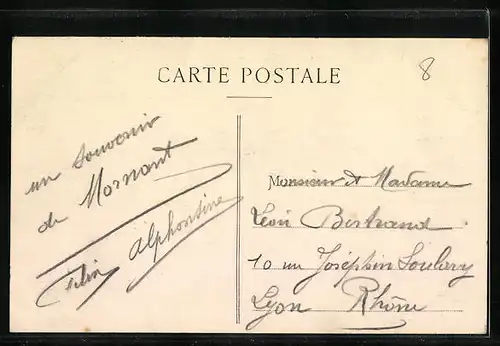 CARTE POSTALE
8
un souvenir
de Mornant
Félin Alphontine
Monsieur et Madame
Léon Bertrand
10 rue Joséphin Soulary
Lyon Rhône